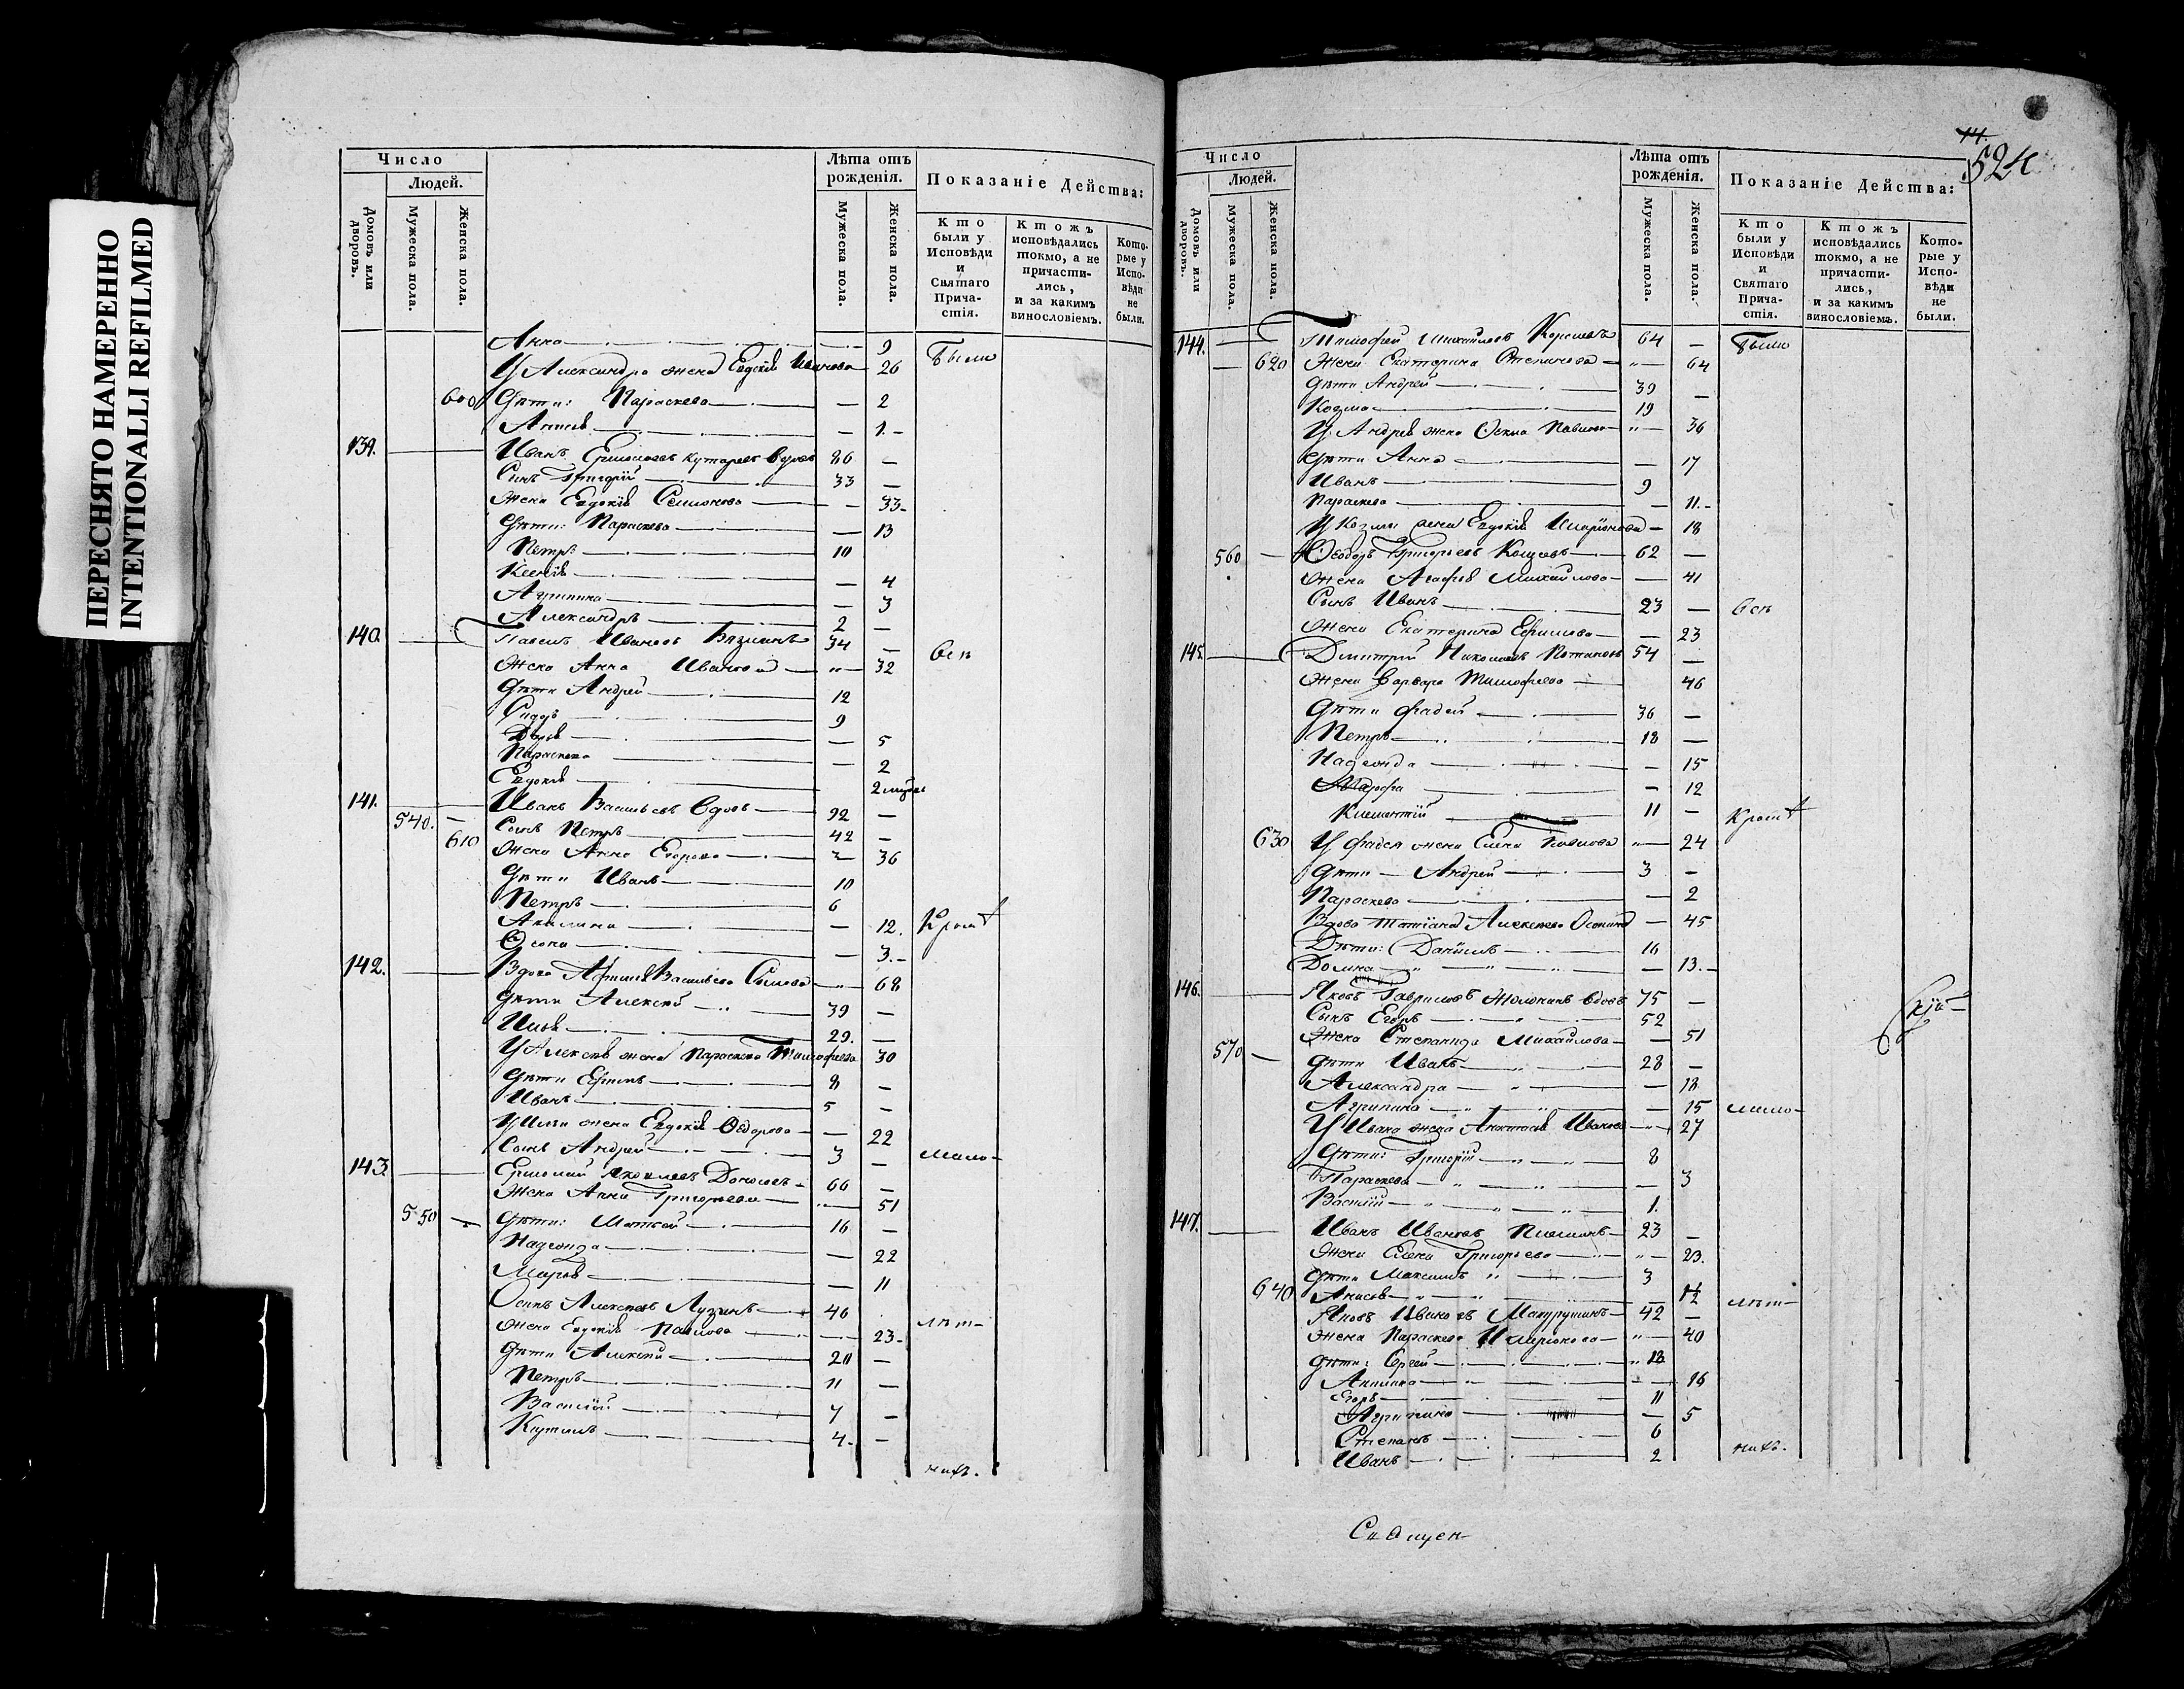 ПЕРЕСНЯТО НАМЕРЕННО
INTENTIONALLI REFILMED
Число
Людей.
Домовъ или дворовъ.
Мужеска пола.
Женска пола.
Лѣта отъ рожденія.
Мужеска пола.
Женска пола.
Показаніе Действа:
Кто были у Исповѣди и Святаго Причастія.
Ктожъ исповѣдались токмо, а не причастились, и за какимъ винословіемъ.
Которые у Исповѣди не были.
Анна 9 Были
У Александра жена Евдокія Иванова 26
600 Дѣти: Параскева 2
1
139. Иванъ Кутаревъ вдовъ 86
Сынъ Григорій 33
Жена Евдокія Семионова 33
Дѣти: Параскева 13
Петръ 10
Ксенія 4
Агрипина 3
Александръ 2
140. Павелъ Ивановъ 34 всѣ
Жена Анна Иванова 32
Дѣти Андрей 12
Сидоръ 9
Дарья 5
Параскева 2
Евдокія 2
141. Иванъ Васильевъ вдовъ 92
540. Сынъ Петръ 42
610 Жена Анна Егорова 36
Дѣти Иванъ 10
Петръ 6
Акилина 12. Кромѣ
3.
142. Вдова Васильева 68
Дѣти Алексей 39
Илья 29.
У Алексея жена Параскева Тимофеева 30
Дѣти 8
Иванъ 5
У Ильи жена Евдокія Ѳедорова 22
Сынъ Андрей 3 мало-
143. Ермолай Яковлевъ 66
Жена Анна Григорьева 51
550 Дѣти: Матвей 16
Надежда 22
Марья 11
Осипъ Алексеевъ Лузинъ 46 лѣт-
Жена Евдокія Павлова 23
Дѣти Алексей 20
Петръ 11
Василій 7
4.
нихъ.
14.
524
Число
Людей.
Домовъ или дворовъ.
Мужеска пола.
Женска пола.
Лѣта отъ рожденія.
Мужеска пола.
Женска пола.
Показаніе Действа:
Кто были у Исповѣди и Святаго Причастія.
Ктожъ исповѣдались токмо, а не причастились, и за какимъ винословіемъ.
Которые у Исповѣди не были.
144. Тимофей Михайловъ 64 Были
620 Жена Екатерина Степанова 64
Дѣти Андрей 39
Козма 19
У Андрея жена Павлова 36
Дѣти Анна 17
Иванъ 9
Параскева 11.
У Козмы жена Евдокія Иларіонова 18
560 Ѳеодоръ Григорьевъ 62
Жена Агафья Михайлова 41
Сынъ Иванъ 23 всѣ
Жена Екатерина Ефимова 23
145. Дмитрий Николаевъ Потаповъ 54
Жена Варвара Тимофеева 46
Дѣти Фадей 36
Петръ 18
Надежда 15
Марфа 12
Климентій 11 Кромѣ
630 У Фадея жена Елена Павлова 24
Дѣти Андрей 3
Параскева 2
Вдова Татіана Алексеева 45
Дѣти: Даніилъ 16
Домна 13.
146. Яковъ Гавриловъ вдовъ 75
Сынъ Егоръ 52
Жена Степанида Михайлова 51
570 Дѣти Иванъ 28
Александра 18
Агрипина 15 мало-
У Ивана жена Анастасія Иванова 27
Дѣти: Григорій 8
Параскева 3
Василій 1.
147. Иванъ Ивановъ 23
Жена Елена Григорьева 23.
Дѣти Максимъ 3
640 Анисья лѣт-
Яковъ Ивановъ 42
Жена Параскева Иларіонова 40
Дѣти: Сергей 18
Акилина 16
Егоръ 11
Агрипина 5
Степанъ 6
Иванъ 2 нихъ.
Священ-